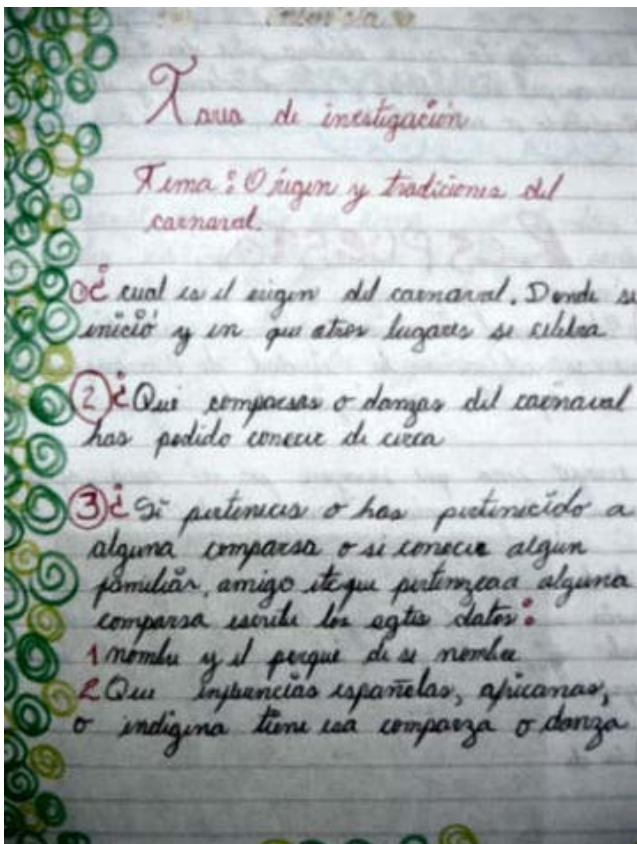 Tarea de investigación
Tema: Origen y tradiciones del
carnaval.
¿cual es el origen del carnaval. Donde se
inició y en que otros lugares se celebra
2 ¿Que comparsas o danzas del carnaval
has podido conocer de cerca
3 ¿Si perteneces o has pertenecido a
alguna comparsa o si conocer algun
familiar, amigo que pertenezca a alguna
comparsa escribe los sgtes datos:
1 nombre y el porque de se nombre
2 Que influencias españolas, africanas,
o indigena tiene esa comparza o danza